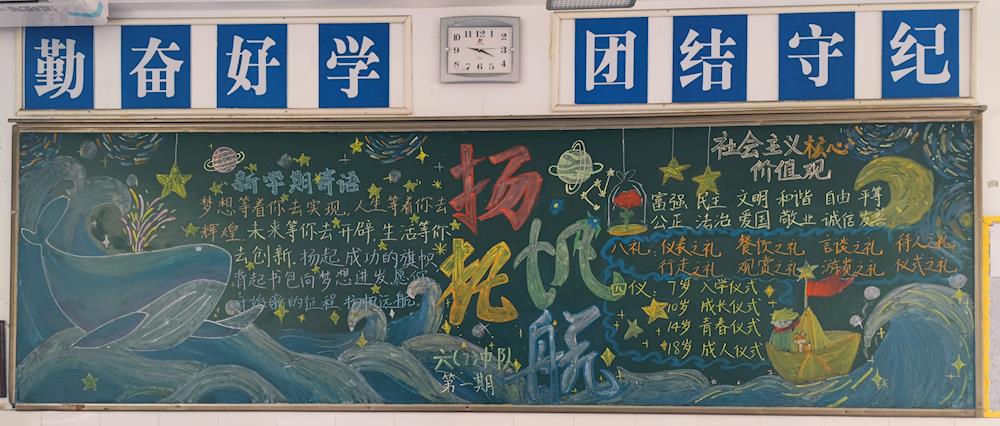 勤奋好学
团结守纪
新学期寄语
梦想等着你去实现,人生等着你去
辉煌,未来等你去开辟,生活等你
去创新.扬起成功的旗帜
背起书包向梦想进发愿你
新的征程 扬帆远航
扬帆
起航
六(7)中队
第一期
社会主义核心
价值观
富强 民主 文明 和谐 自由 平等
公正 法治 爱国 敬业 诚信 友善
八礼:仪表之礼 餐饮之礼 言谈之礼 待人之礼
行走之礼 观赏之礼 游览之礼 仪式之礼
四仪:7岁 入学仪式
10岁 成长仪式
14岁 青春仪式
18岁 成人仪式